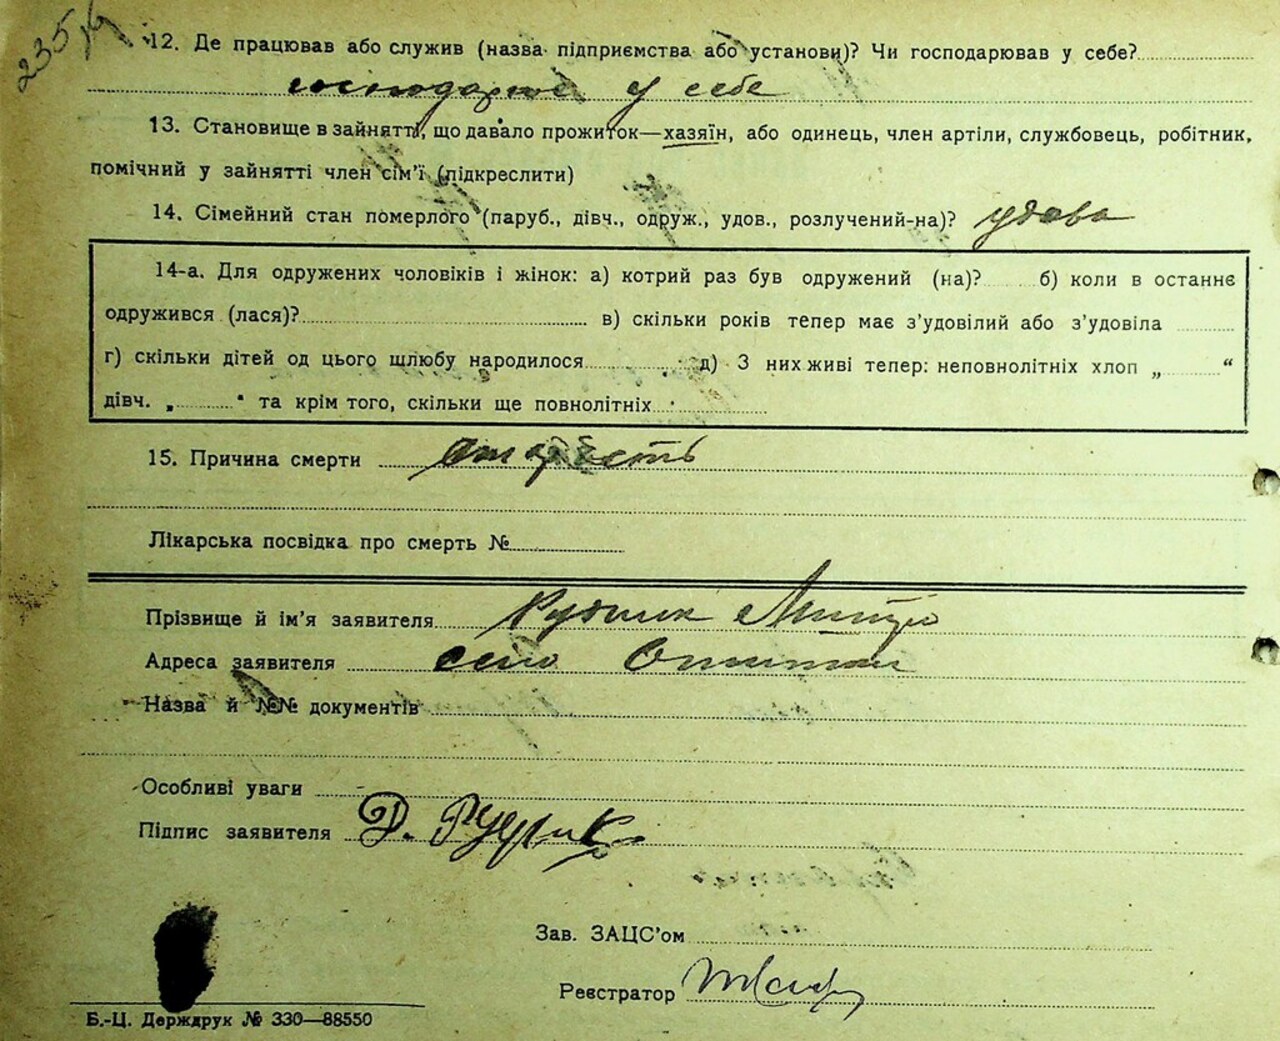 235
12. Де працював або служив (назва підприємства або установи)? Чи господарював у себе?
господарює у себе
13. Становище в зайнятті, що давало прожиток—хазяїн, або одинець, член артіли, службовець, робітник,
помічний у зайнятті член сім'ї (підкреслити)
14. Сімейний стан померлого (паруб., дівч., одруж., удов., розлучений-на)? удова
14-а. Для одружених чоловіків і жінок: а) котрий раз був одружений (на)? б) коли в останнє
одружився (лася)? в) скільки років тепер має з'удовілий або з'удовіла
г) скільки дітей од цього шлюбу народилося д) З них живі тепер: неповнолітніх хлоп „ “
дівч. „ “ та крім того, скільки ще повнолітніх
15. Причина смерти старість
Лікарська посвідка про смерть №
Прізвище й ім'я заявителя Рудик Дмитро
Адреса заявителя село
Назва й №№ документів
Особливі уваги
Підпис заявителя Д. Рудик
Зав. ЗАЦС'ом
Реєстратор
Б.-Ц. Держдрук № 330—88550